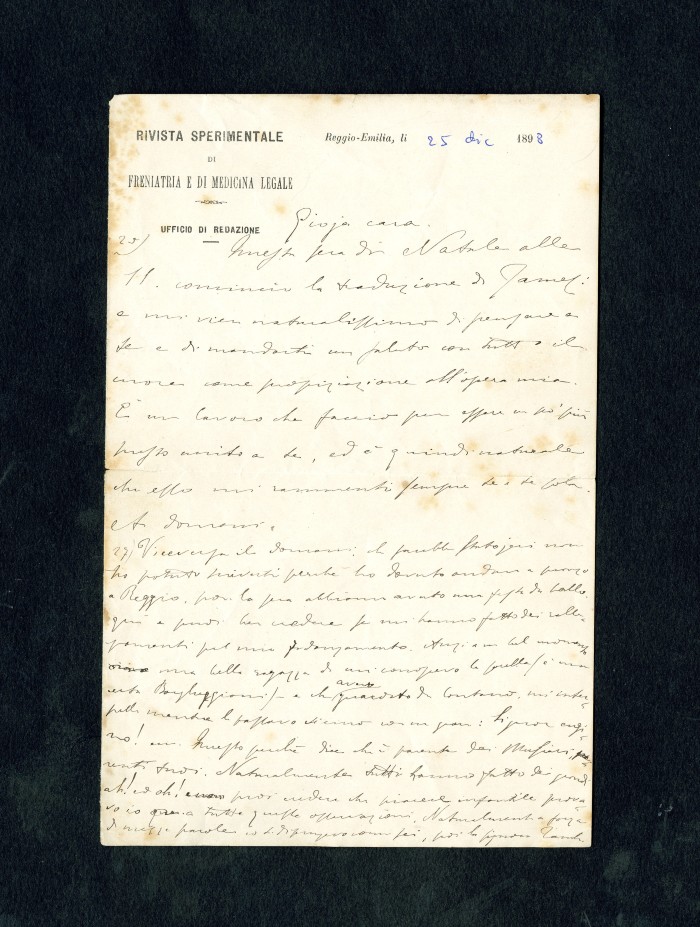 RIVISTA SPERIMENTALE
DI
FRENIATRIA E DI MEDICINA LEGALE
UFFICIO DI REDAZIONE
Reggio-Emilia, li 25 dic 1898
Gioja cara.
25) Questa sera di Natale alle
11. comincio la traduzione di James:
e mi vien naturalissimo di pensare a
te e di mandarti un saluto con tutto il
cuore come propiziazione all'opera mia.
È un lavoro che faccio per essere un po' più
presto unito a te, ed è quindi naturale
che esso mi rammenti sempre te e te sola.
A domani.
27) Viceversa il domani, che sarebbe stato jeri non
ho potuto scriverti perché ho dovuto andare a pranzo
a Reggio, poi la sera abbiamo avuto una festa da ballo
qui e puoi ben credere se mi hanno fatto dei ralle-
gramenti pel mio fidanzamento. Anzi a un bel momento
una bella ragazza di cui conoscevo la sorella
a che avevo guardato da lontano, mi
mentre le passavo vicino con un gran: Signor cugi-
no! Questo perché dice ch'è parente dei
renti tuoi. Naturalmente tutti hanno fatto dei grandi
ah! ed oh! e puoi credere che piacere infantile prova-
vo io a tutte queste osservazioni. Naturalmente a forza
di mezze parole poi la signora